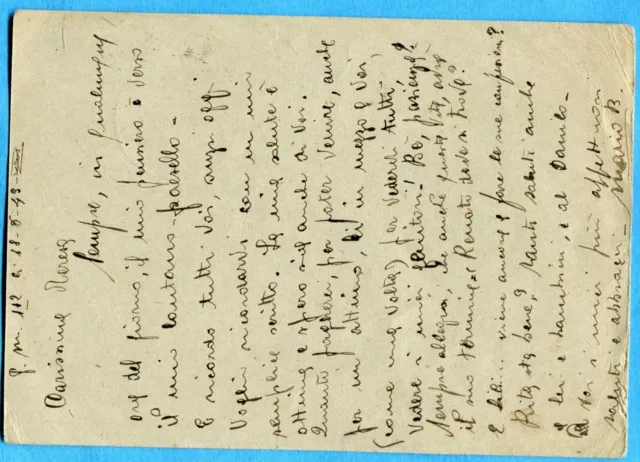 P. M. 112 li 18-5-43
Carissima Teresa
Sempre, in qualunque
ora del giorno, il mio pensiero è verso
il mio lontano paesello -
E ricordo tutti voi, anzi oggi
voglio ricordarvi con un mio
semplice scritto. La mia salute è
ottima e spero sia anche di voi.
Quanto pagherei, per poter venire, anche
per un attimo, lì in mezzo a voi,
(come una volta) per vedervi tutti,
vedere i miei genitori! Bè, pazienza!
Sempre allegria, che anche questa vita, avrà
il suo termine. Renato dove si trova?
E viene ancora a fare le sue
Rita, sta bene? Tanti saluti anche
a lei e bambini, e al Danilo -
A voi i miei più affettuosi
saluti e abbracci - Mario B.